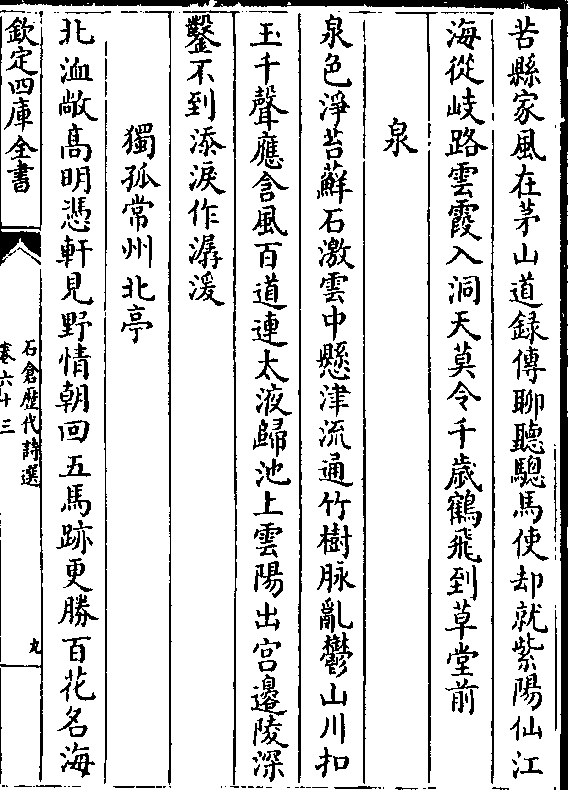 苦縣家風在茅山道録傳聊聽驄馬使却就紫陽仙江
海從岐路雲霞入洞天莫令千歳鶴飛到草堂前
泉
泉色淨苔蘚石激雲中懸津流通竹樹脉亂鬱山川扣
玉千聲應含風百道連太液歸池上雲陽出宫邉陵深
鑿不到添淚作潺湲
獨孤常州北亭
北洫敞髙明憑軒見野情朝回五馬跡更勝百花名海
欽定四庫全書
石倉歴代詩選
卷六十三
九